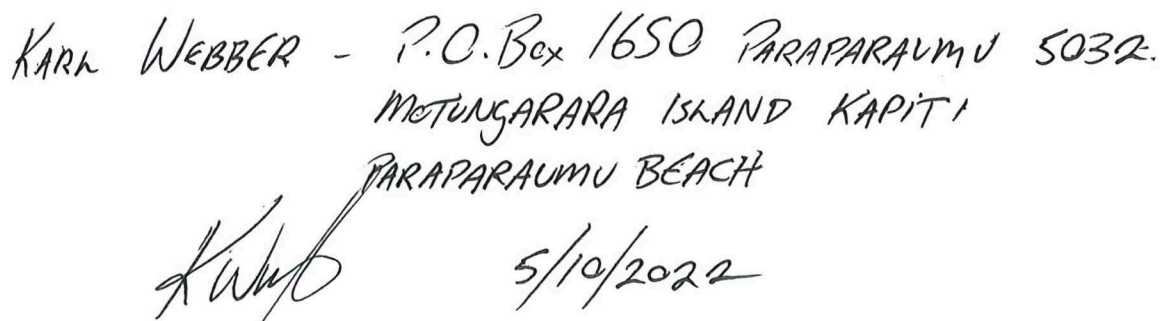 KARL WEBBER - P.O.Box 1650 PARAPARAUMU 5032.
MOTUNGARARA ISLAND KAPITI
PARAPARAUMU BEACH
5/10/2022